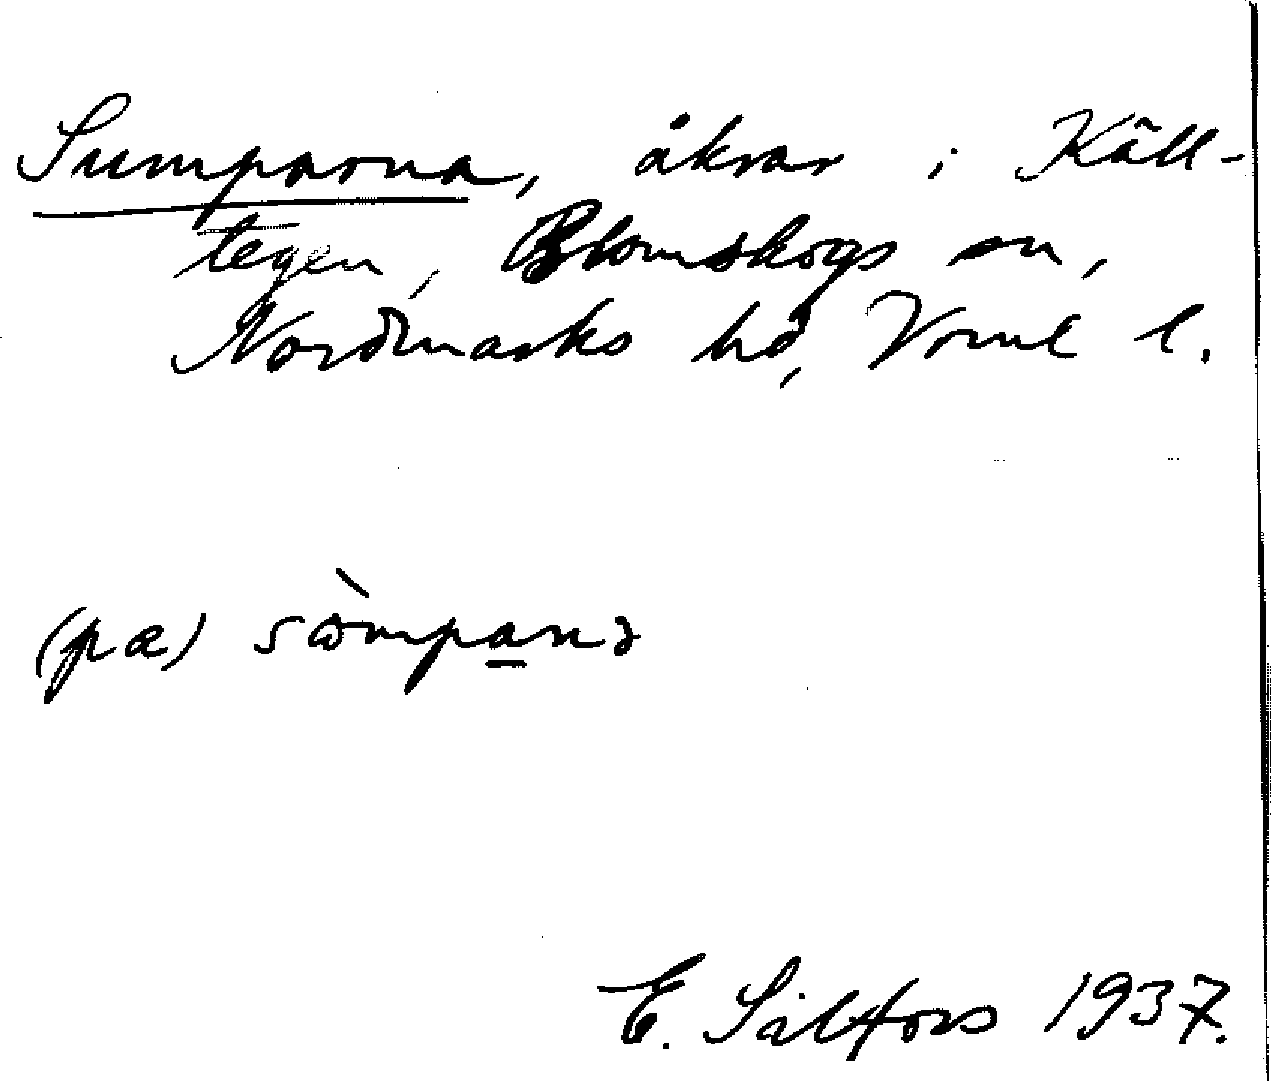 Sumparna, åkrar i Käll-
tegen, Blomskogs sn,
Nordmarks hd, Vrml l.
(pæ) sòmpanə
E. Sälfors 1937.